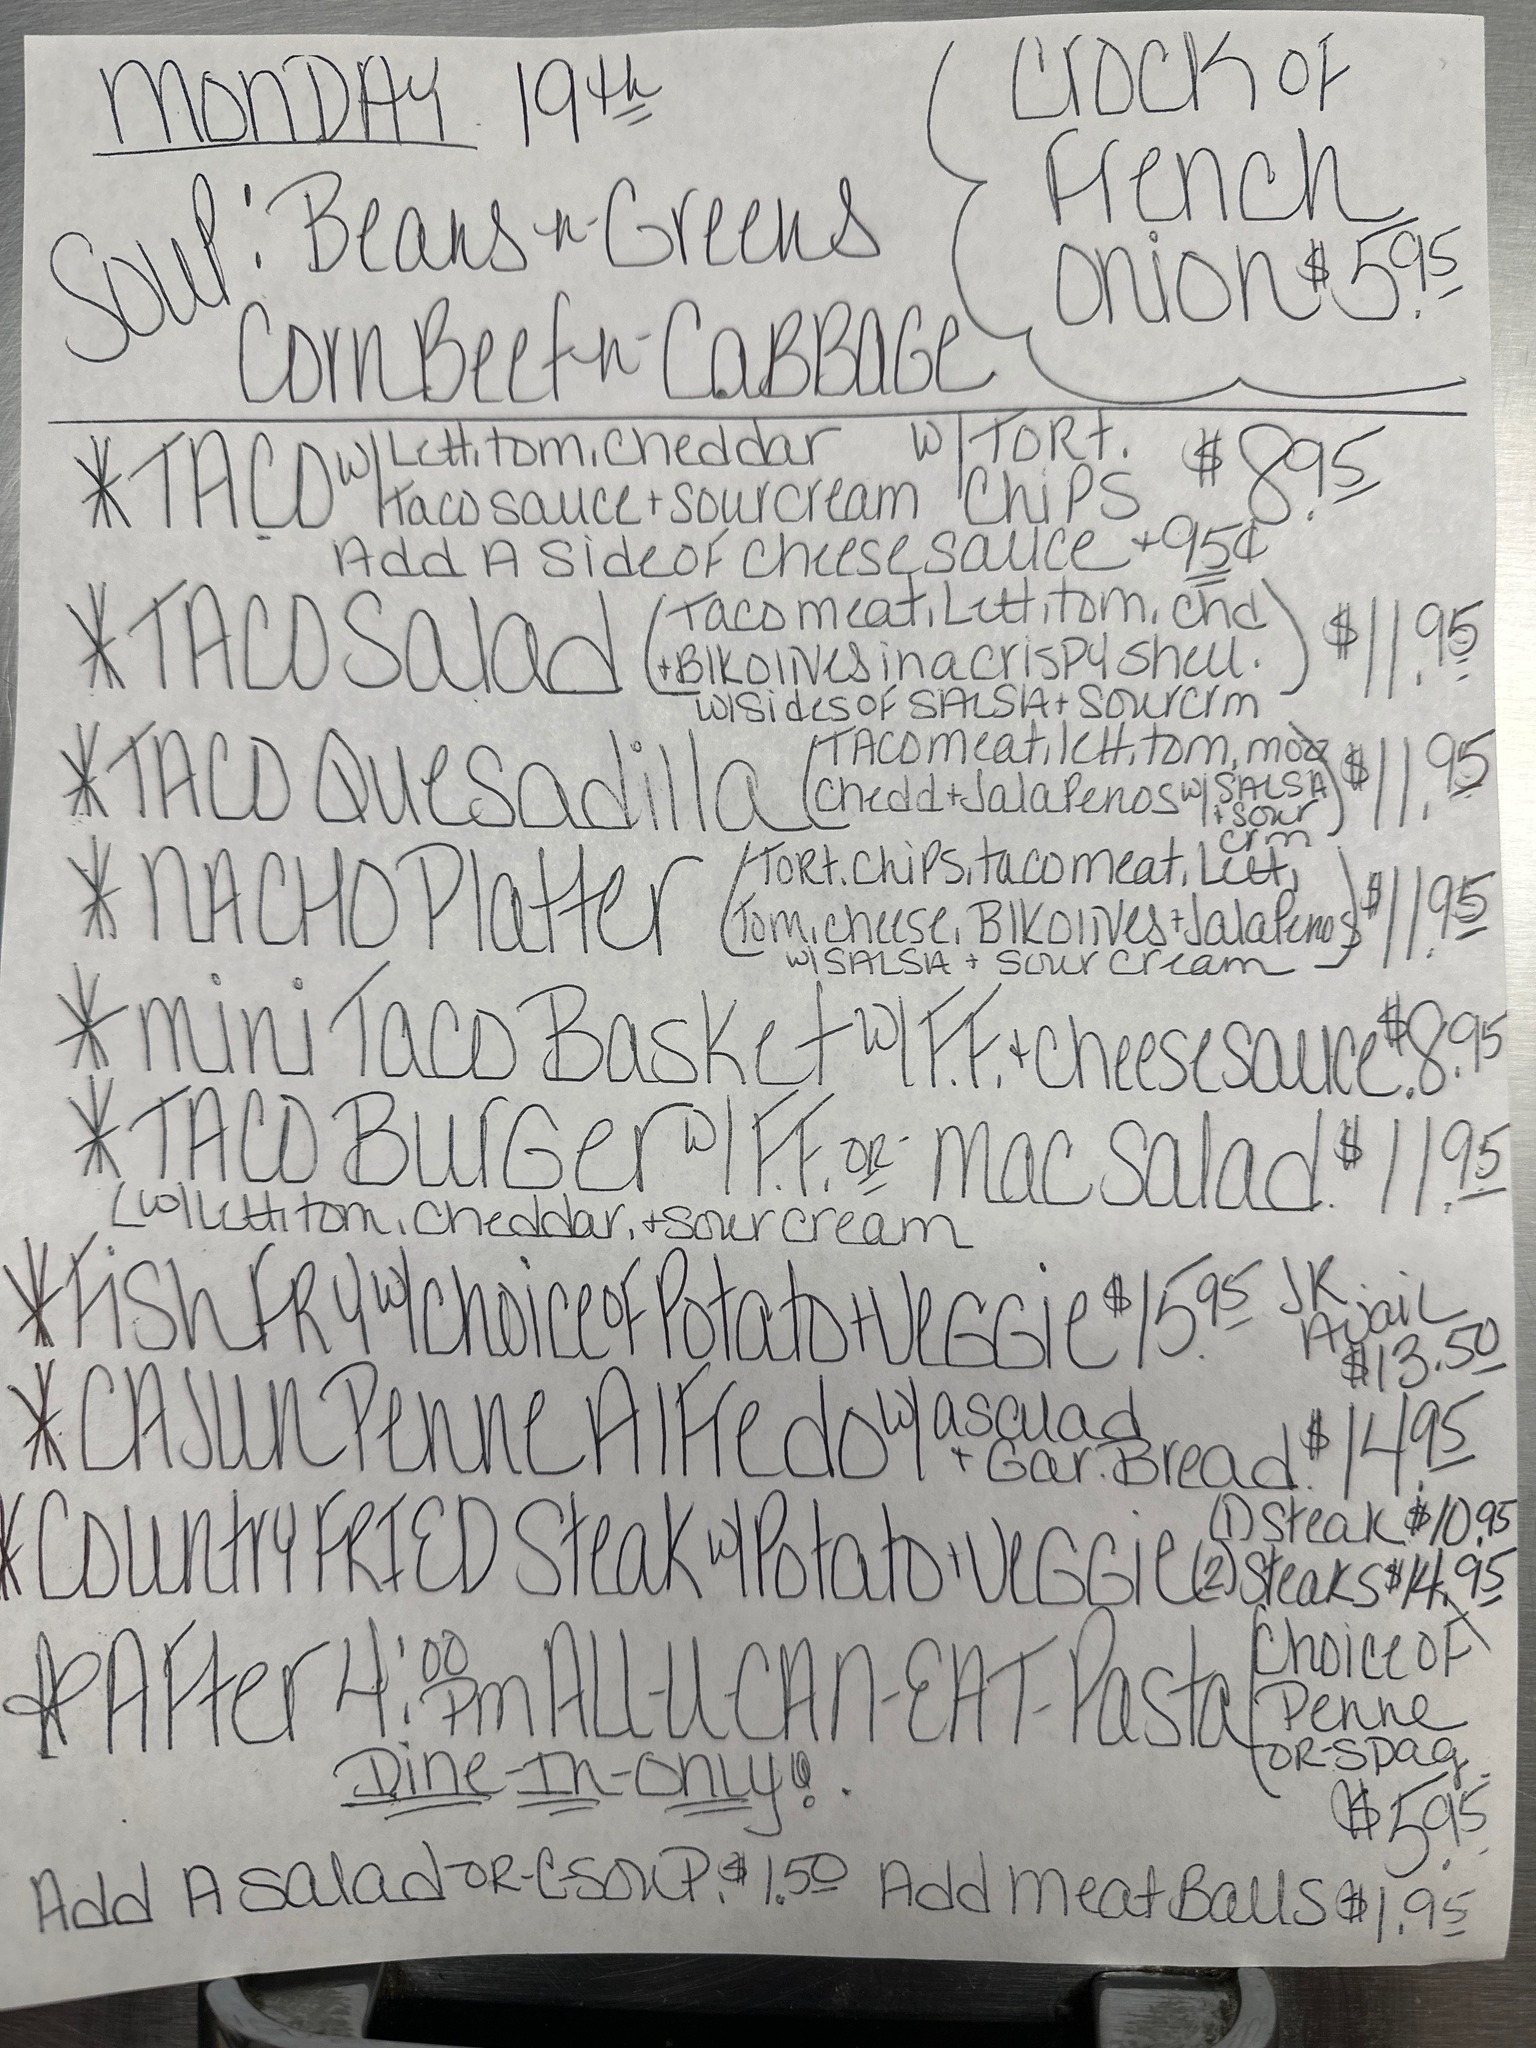 MONDAY 19th
Soup: Beans-n-Greens
Corn Beef-n-CABBAGE
Crock of
French
Onion $5.95
*TACO w/ Lett, tom, cheddar w/ TORt. $8.95
taco sauce + sour cream Chips
Add A side of cheese sauce +95¢
*TACO Salad (Taco meat, Lett, tom, chd $11.95
+ Blk olives in a crispy shell.)
w/ sides of SALSA + sour crm
*TACO Quesadilla (TACO meat, lett, tom, mozz $11.95
chedd + Jalapenos w/ SALSA
+ sour
crm)
*NACHO Platter (TORt. chips, taco meat, Lett, $11.95
Tom, cheese, Blk olives + Jalapenos
w/ SALSA + sour cream)
*mini Taco Basket w/ F.F. + cheese sauce. $8.95
*TACO BURGER w/ F.F. OR- Mac Salad. $11.95
(w/ lett, tom, cheddar, + sour cream
*Fish FRY w/ choice of Potato + Veggie $15.95 JR
Avail
$13.50
*CAJUN Penne Alfredo w/ a salad
+ Gar. Bread. $14.95
*Country FRIED Steak w/ Potato + Veggie (1) Steak $10.95
(2) Steaks $14.95
*After 4:00 Pm ALL-U-CAN-EAT-Pasta (Choice of
Penne
OR-Spag.)
Dine-In-Only!
$5.95
Add A salad-OR-C-Soup. $1.50 Add Meat Balls $1.95